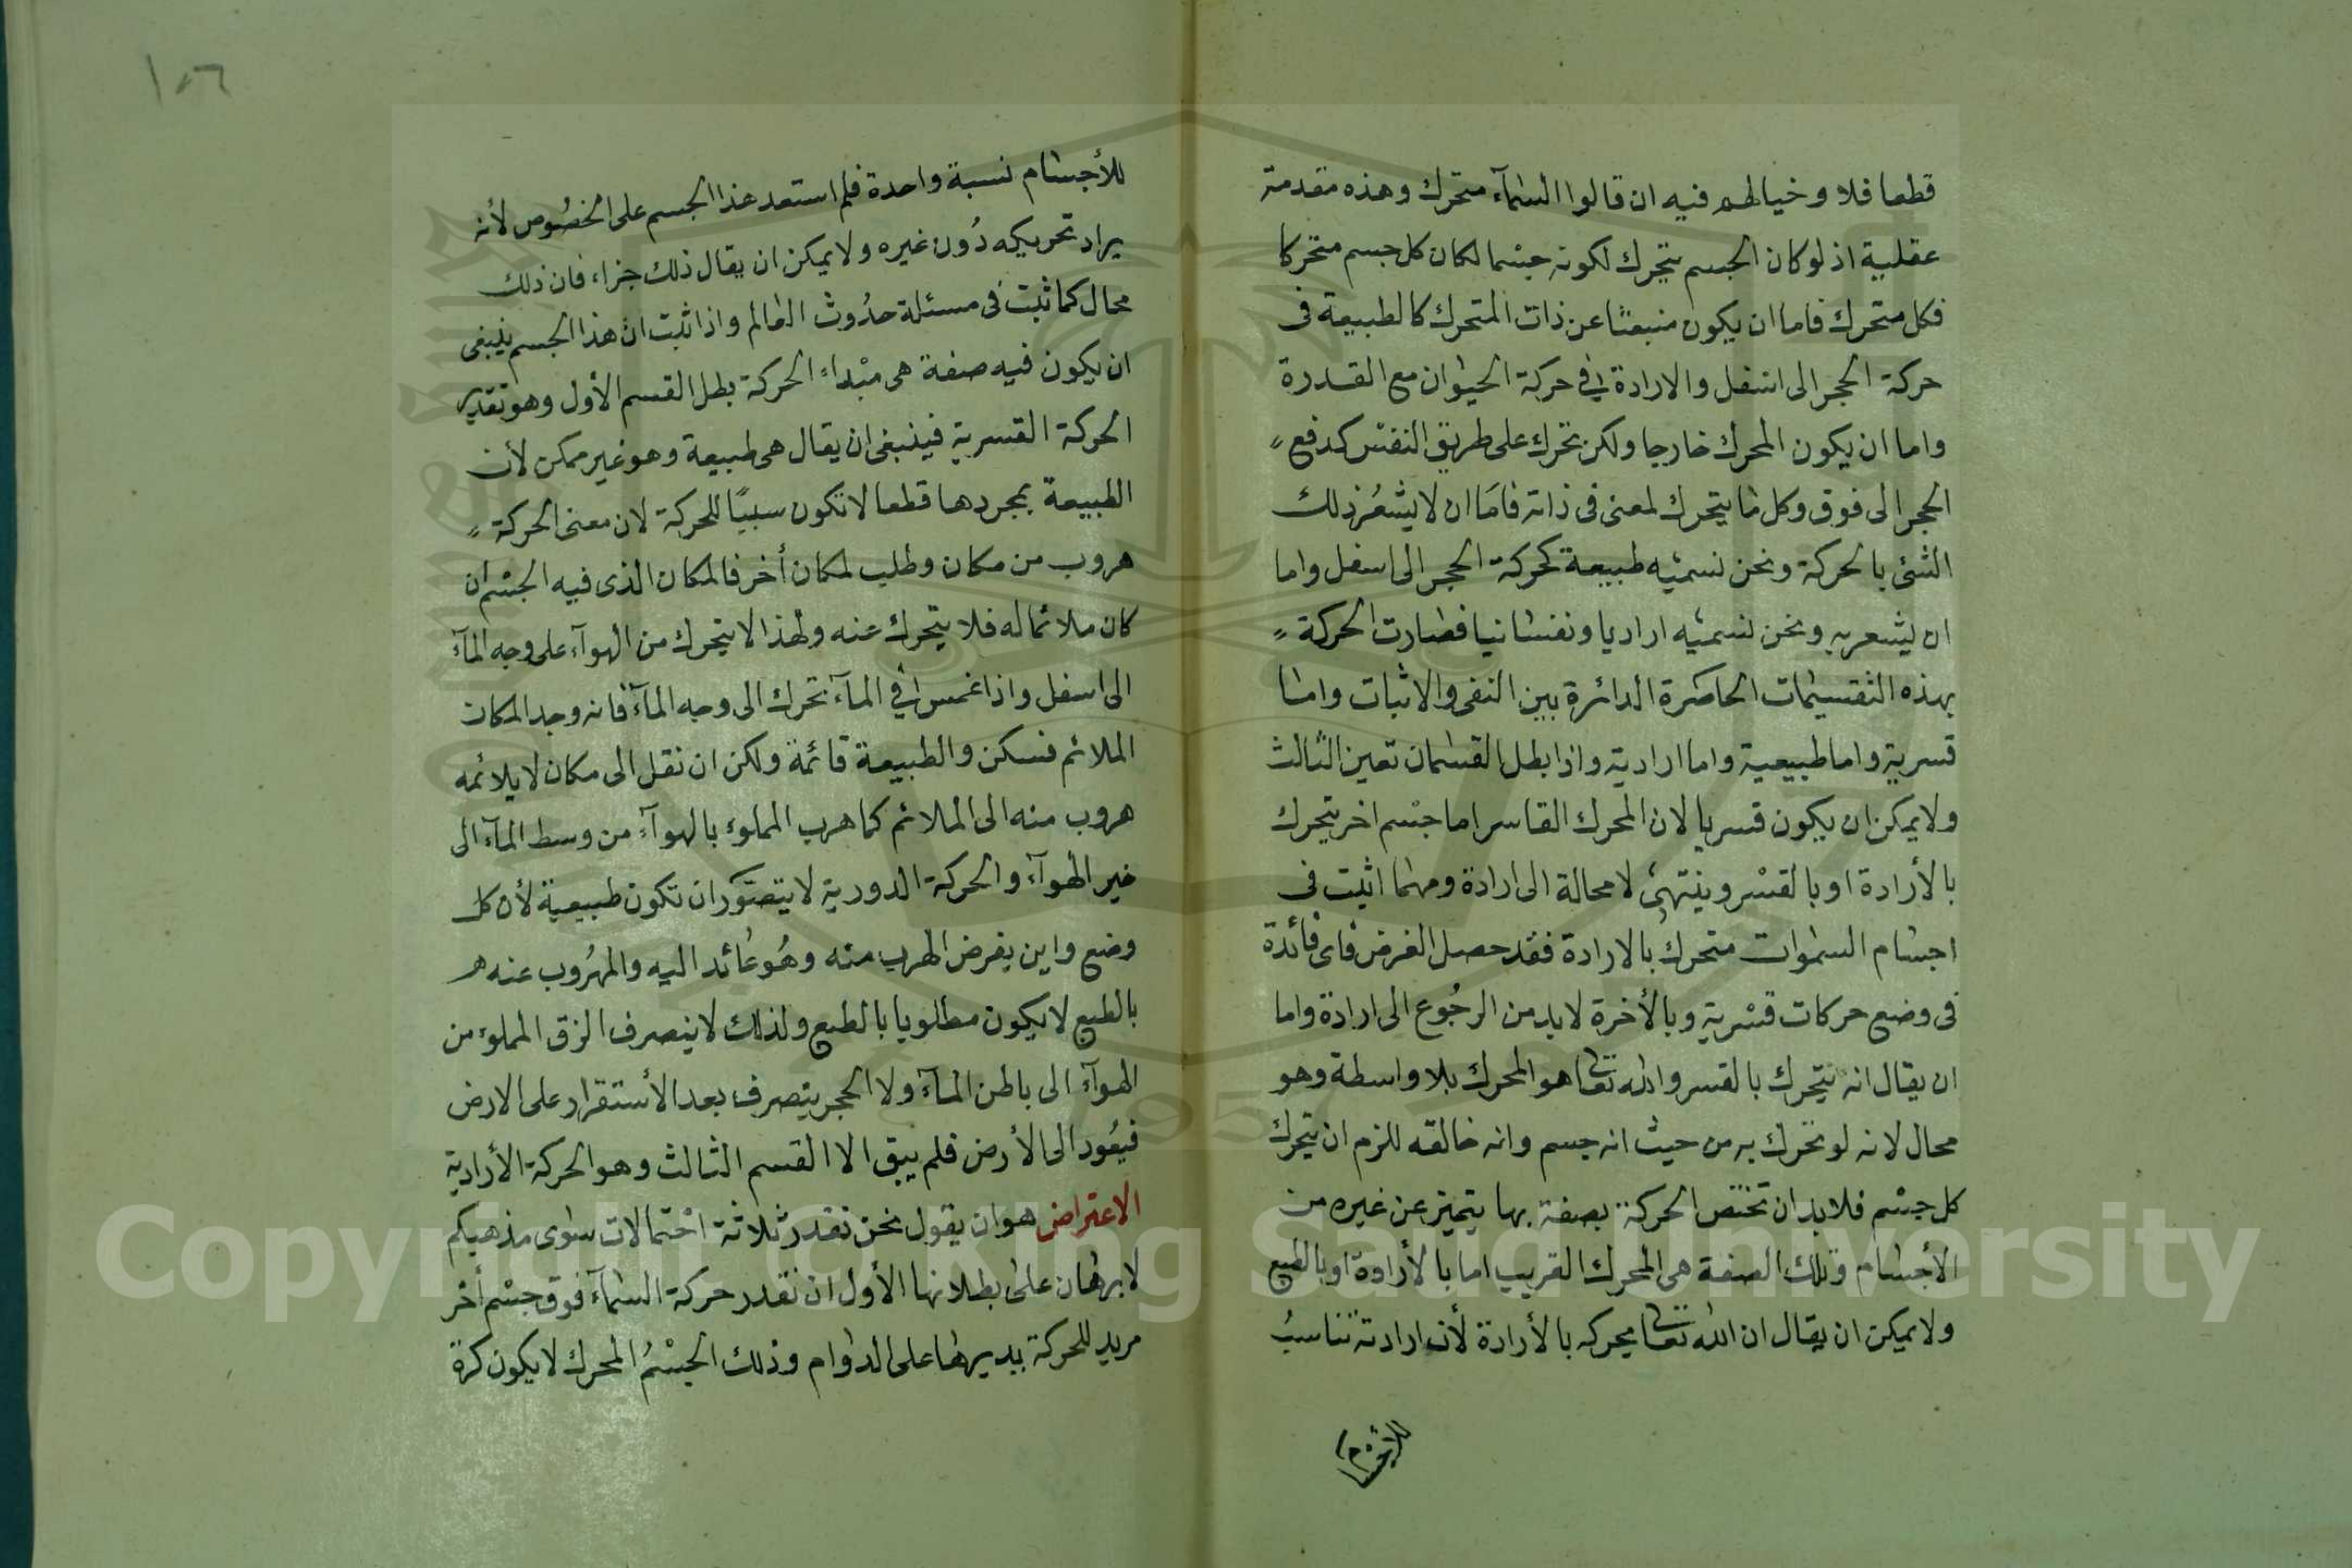 قطعا فلا وخيالهم فيه ان قالوا السمآء متحرك وهذه مقدمة
عقلية اذ لو كان الجسم يتحرك لكونه جسما لكان كل جسم متحركا
فكل متحرك فاما ان يكون منبعثا عن ذات المتحرك كالطبيعة فى
حركة الحجر الى اسفل والارادة فى حركة الحيوان مع القدرة
واما ان يكون المحرك خارجا ولكن يحرك على طريق النفس كدفع
الحجر الى فوق وكل ما يتحرك لمعنى فى ذاته فامَا ان لا يشعُر ذلك
الشئ بالحركة ونحن نسميه طبيعة كحركة الحجر الى اسفل واما
ان ليشعر به ونحن نسميه اراديا ونفسانيا فصارت الحركة
بهذه التقسيمات الحاصرة الدائرة بين النفى والاثبات واما
قسرية واما طبيعية واما ارادية واذا بطل القسمان تعين الثالث
ولا يمكن ان يكون قسريا لان المحرك القاسر اما جسم اخر يتحرك
بالأرادة او بالقسر وينتهى لا محالة الى ارادة ومهما اثبت فى
اجسام السموات متحرك بالارادة فقد حصل الغرض فاى فائدة
فى وضع حركات قسرية وبالأخرة لا بد من الرجُوع الى ارادة واما
ان يقال انه يتحرك بالقسر والله تعا هو المحرك بلا واسطة وهو
محال لانه لو تحرك به من حيث انه جسم وانه خالقه للزم ان يتحرك
كل جسم فلا بد ان تختص الحركة بصفة بها يتميز عن غيره من
الأجسام وتلك الصفة هى المحرك القريب اما بالأرادة او بالطبع
ولا يمكن ان يقال ان الله تعا يحركه بالأرادة لأن ارادته تناسبُ
للأجسام
١٥٦
للأجسام نسبة واحدة فلم استعد هذا الجسم على الخصُوص لأنه
يراد تحريكه دُون غيره ولا يمكن ان يقال ذلك جزاء فان ذلك
محال كما ثبت فى مسئلة حدُوث العالم واذا ثبت ان هذا الجسم ينبغى
ان يكون فيه صفة هى مبْداء الحركة بطل القسم الأول وهو تقدير
الحركة القسرية فينبغى ان يقال هى طبيعة وهو غير ممكن لأن
الطبيعة بمجردها قطعا لا تكون سببًا للحركة لان معنى الحركة
هروب من مكان وطلب لمكان أخر فالمكان الذى فيه الجسم ان
كان ملائما له فلا يتحرك عنه ولهذا لا يتحرك من الهوآء على وجه المآء
الى اسفل واذا غمس فى المآء تحرك الى وجه المآء فانه وجد المكان
الملائم فسكن والطبيعة قائمة ولكن ان نقل الى مكان لا يلائمه
هروب منه الى الملائم كما هرب المملوء بالهوآء من وسط المآء الى
خير الهوآء والحركة الدورية لا يتصَوّر ان تكون طبيعية لأن كل
وضع واين يفرض الهرب منه وهُو عائد اليه والمهرُوب عنه
بالطبع لا يكون مطلوبا بالطبع ولذلك لا ينصرف الزق المملوء من
الهوآء الى باطن المآء ولا الحجر يتصرف بعد الأستقرار على الارض
فيعُود الى الأرض فلم يبق الا القسم الثالث وهو الحركة الأرادية
الاعتراض هو ان يقول نحن نقدر ثلاثة احتمالات سوى مذهبكم
لا برهان على بطلانها الأول ان نقدر حركة السمآء فوق جسْم أخر
مريد للحركة بيديرها على الدوام وذلك الجسْمُ المحرك لا يكون كرة
Copyright © King Saud University
1957